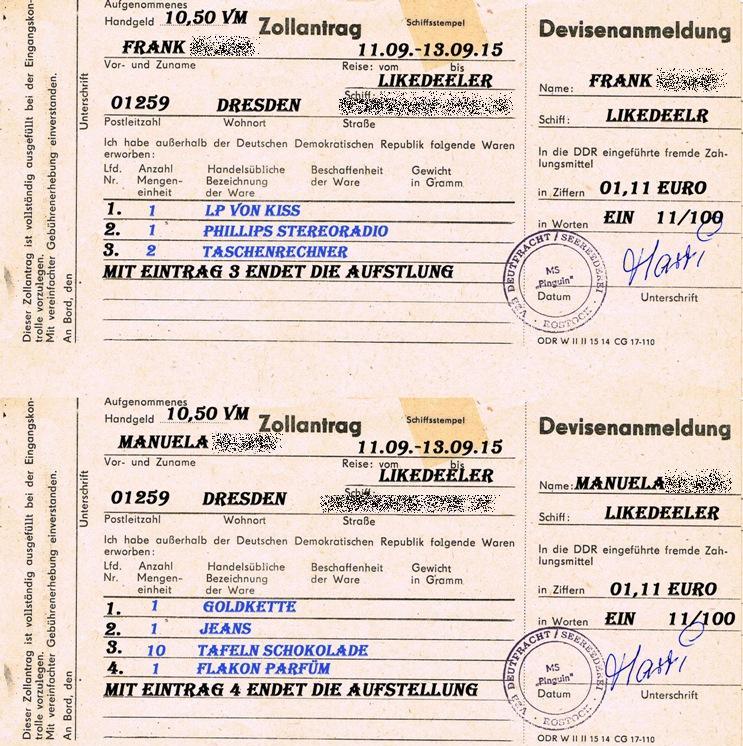 Aufgenommenes
Handgeld 10,50 VM Zollantrag Schiffsstempel
FRANK 11.09.-13.09.15
Vor- und Zuname Reise: vom bis
LIKEDEELER
Schiff:
01259 DRESDEN
Postleitzahl Wohnort Straße
Ich habe außerhalb der Deutschen Demokratischen Republik folgende Waren
erworben:
Lfd. Anzahl Handelsübliche Beschaffenheit Gewicht
Nr. Mengen- Bezeichnung der Ware in Gramm
einheit der Ware
1. 1 LP VON KISS
2. 1 PHILLIPS STEREORADIO
3. 2 TASCHENRECHNER
MIT EINTRAG 3 ENDET DIE AUFSTLUNG
Dieser Zollantrag ist vollständig ausgefüllt bei der Eingangskon-
trolle vorzulegen.
Mit vereinfachter Gebührenerhebung einverstanden.
An Bord, den
Unterschrift
Devisenanmeldung
Name: FRANK
Schiff: LIKEDEELR
In die DDR eingeführte fremde Zah-
lungsmittel
in Ziffern 01,11 EURO
in Worten EIN 11/100
VEB DEUTFRACHT / SEEREEDEREI · ROSTOCK ·
MS
"Pinguin"
Datum Unterschrift
ODR W II II 15 14 CG 17-110
Aufgenommenes
Handgeld 10,50 VM Zollantrag Schiffsstempel
MANUELA 11.09.-13.09.15
Vor- und Zuname Reise: vom bis
LIKEDEELER
Schiff:
01259 DRESDEN
Postleitzahl Wohnort Straße
Ich habe außerhalb der Deutschen Demokratischen Republik folgende Waren
erworben:
Lfd. Anzahl Handelsübliche Beschaffenheit Gewicht
Nr. Mengen- Bezeichnung der Ware in Gramm
einheit der Ware
1. 1 GOLDKETTE
2. 1 JEANS
3. 10 TAFELN SCHOKOLADE
4. 1 FLAKON PARFÜM
MIT EINTRAG 4 ENDET DIE AUFSTELLUNG
Dieser Zollantrag ist vollständig ausgefüllt bei der Eingangskon-
trolle vorzulegen.
Mit vereinfachter Gebührenerhebung einverstanden.
An Bord, den
Unterschrift
Devisenanmeldung
Name: MANUELA
Schiff: LIKEDEELER
In die DDR eingeführte fremde Zah-
lungsmittel
in Ziffern 01,11 EURO
in Worten EIN 11/100
VEB DEUTFRACHT / SEEREEDEREI · ROSTOCK ·
MS
"Pinguin"
Datum Unterschrift
ODR W II II 15 14 CG 17-110